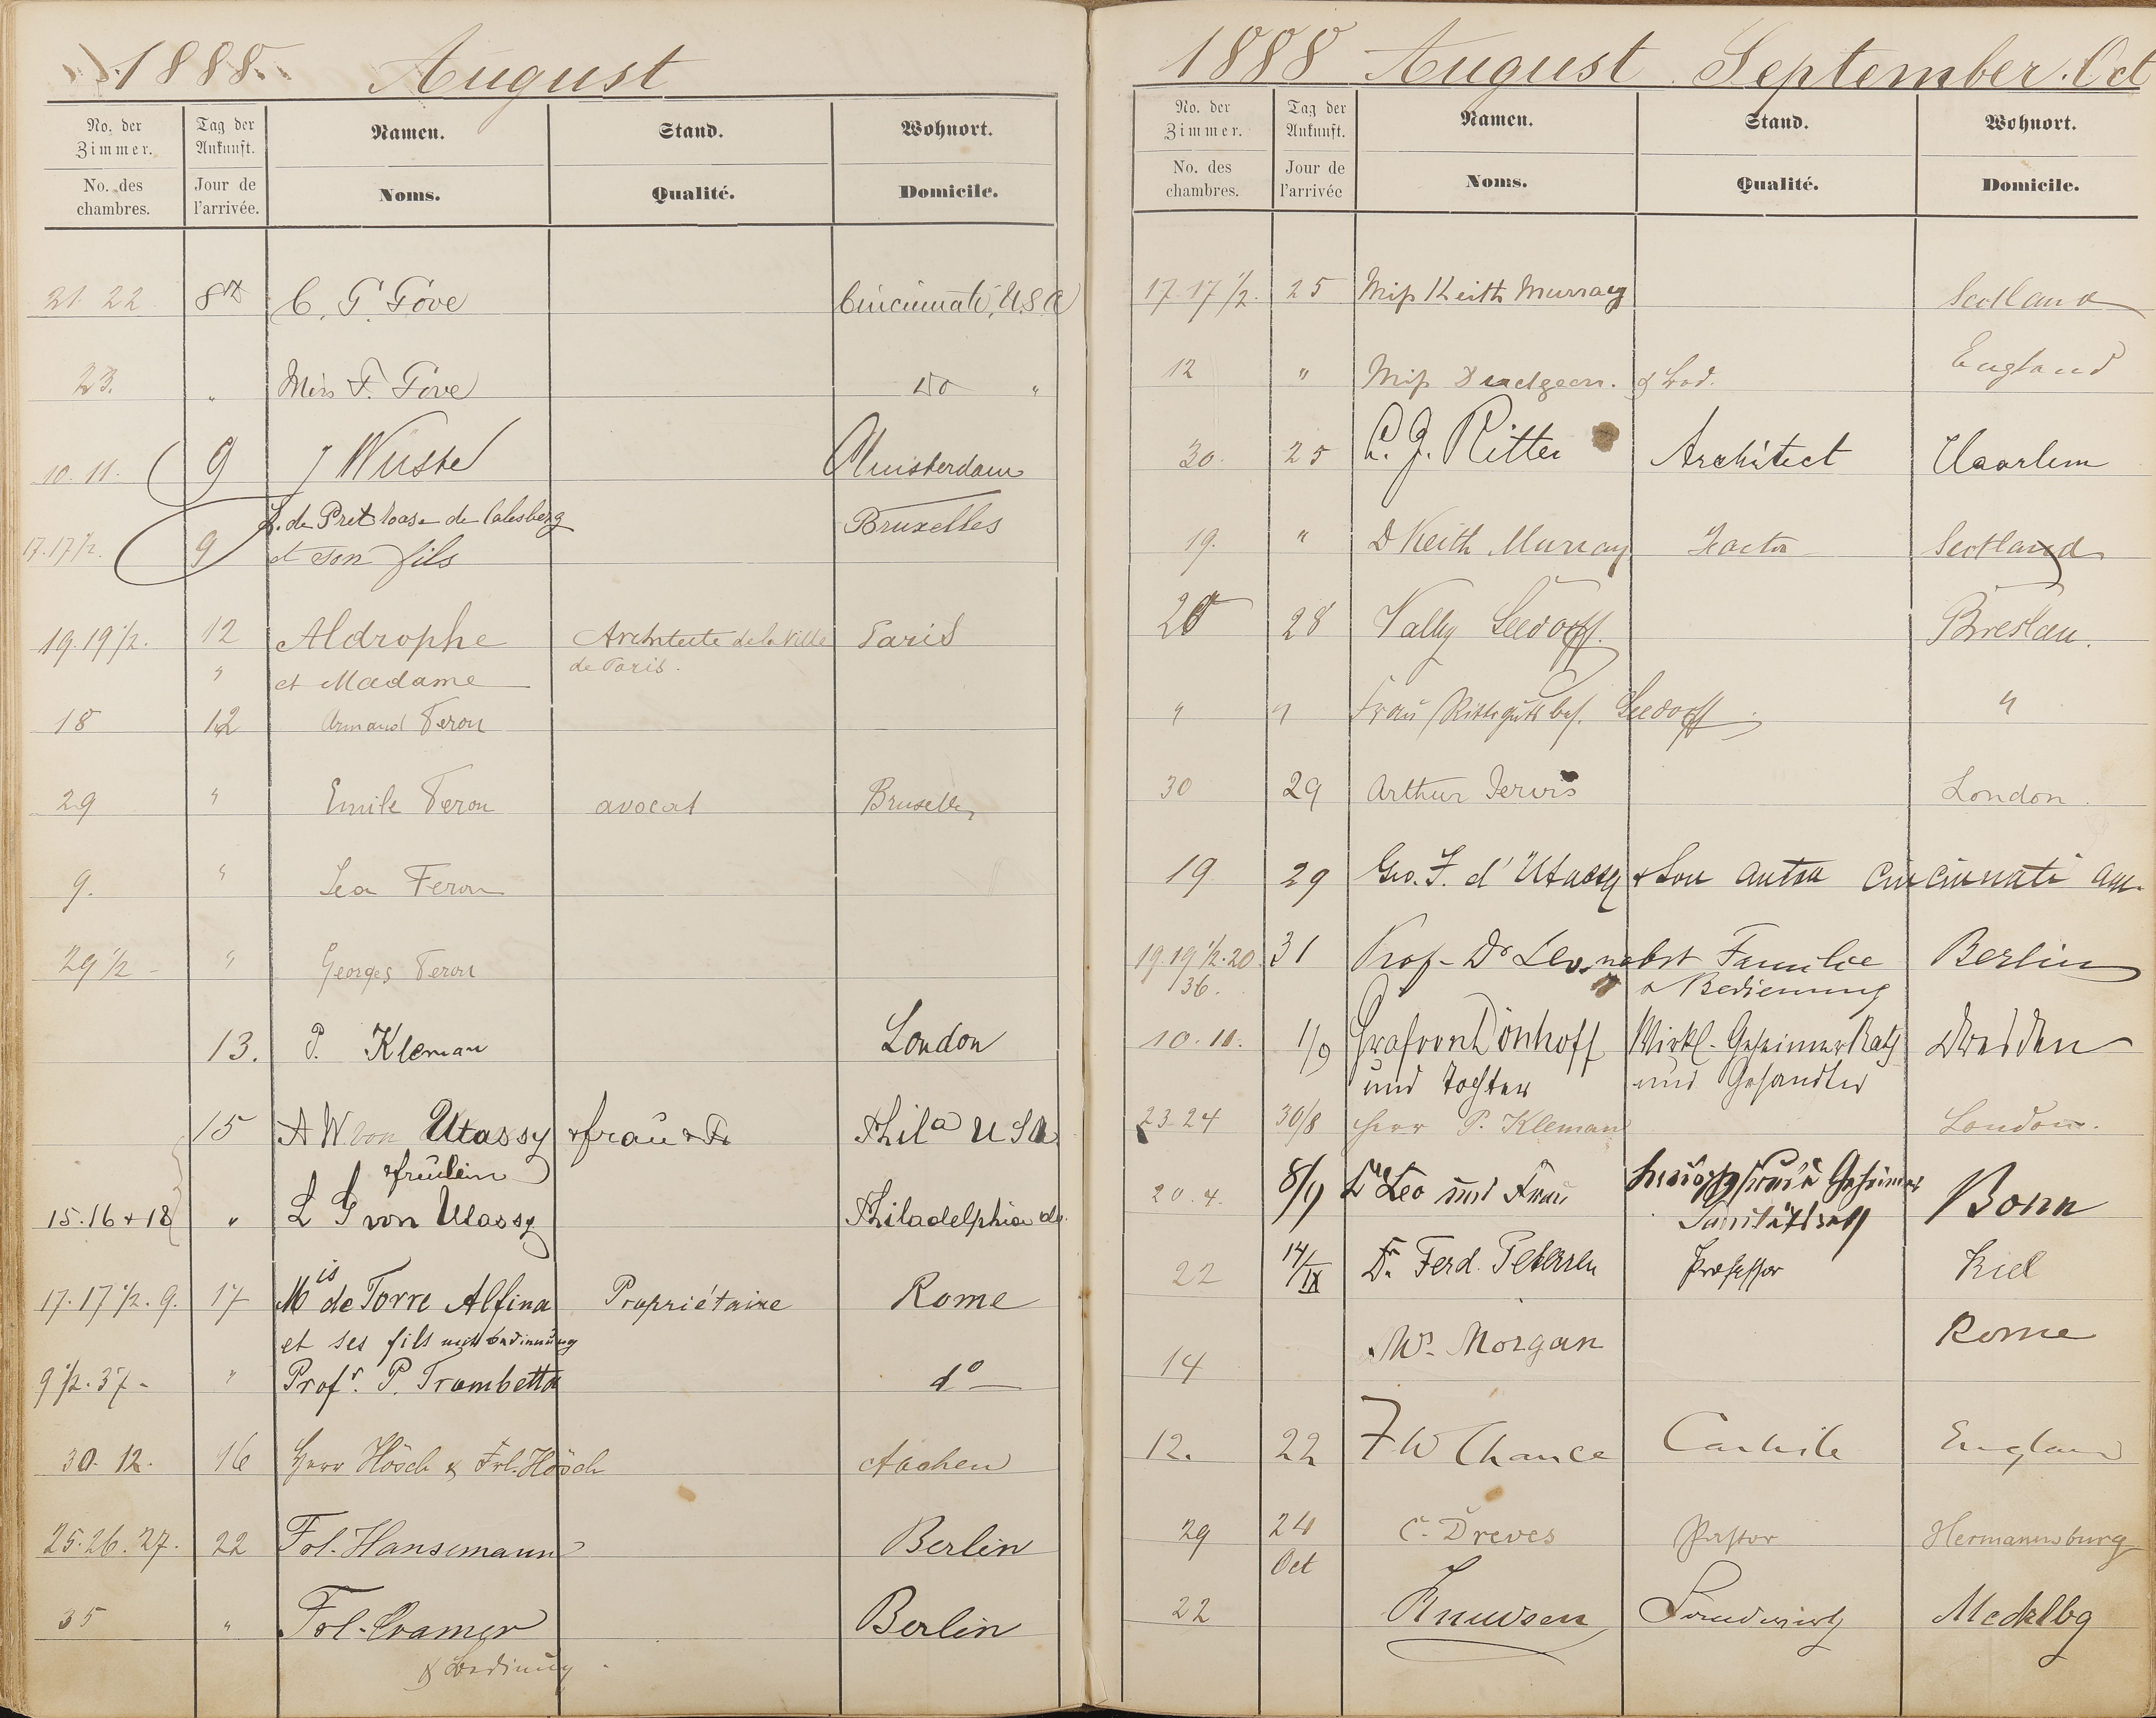 1888. August
No. der Zimmer. Tag der Ankunft. Namen. Stand. Wohnort.
No. des chambres. Jour de l'arrivée. Noms. Qualité. Domicile.
21. 22 8 C. G. Gove Cincinnati, U.S.A
23. " Miss F. Gove Do "
10. 11. 9 J Wüste Amsterdam
17. 17½. 9 de Pret Roose de Calesberg Bruxelles
et son fils
19. 19½. 12 Aldrophe Architecte de la Ville Paris
" et Madame de Paris.
18 12 Armand Feron
29 " Emile Feron avocat Bruxelles
9. " Lea Feron
29½ - " Georges Feron
13. P. Kleman London
15 A W von Utassy & frau Phila USA
& fräulein
15. 16 + 18 " L G von Utassy Philadelphia do.
17. 17½. 9. 17 Mis de Torre Alfina Propriétaire Rome
et ses fils mit bedienung
9½. 37 - " Profr. P. Trombetta do
30. 12. 16 Herr Hösch & Frl. Hösch Aachen
25. 26. 27. 22 Frl. Hansemann Berlin
35 " Frl. Cramer Berlin
& bedinung
1888 August September. Oct
No. der Zimmer. Tag der Ankunft. Namen. Stand. Wohnort.
No. des chambres. Jour de l'arrivée Noms. Qualité. Domicile.
17. 17½. 25 Miss Keith Murray Scotland
12 " Miss Dudgeon. & Bed. England
30. 25 Ritter Architect Haarlem
19. " D Keith Murray Factor Scotland
20 28 Vally Seedorff. Breslau.
" " Frau Rittergutsbes. Seedorff "
30 29 Arthur Jervis London.
19 29 Geo. F. d'Utassy & Son Anton Cincinnati Am.
19. 19½. 20. 31 Prof. Dr Leo, nebst Familie Berlin
36. & Bedienung
10. 11. 1/9 Graf von Dönhoff Wirkl. Geheimer Rath Dresden
und Tochter und Gesandter
23 24 30/8 Herr P. Kleman London.
20. 4. 8/9 Dr Leo und Frau Geheimer Bonn
Sanitätsrath
22 14/IX Dr. Ferd. Petersen Professor Kiel
14 Morgan Rome
12. 22 F W Chance Carlisle England
29 24 C. Dreves Pastor Hermannsburg
Oct
22 Knudsen Landwirth Mecklbg